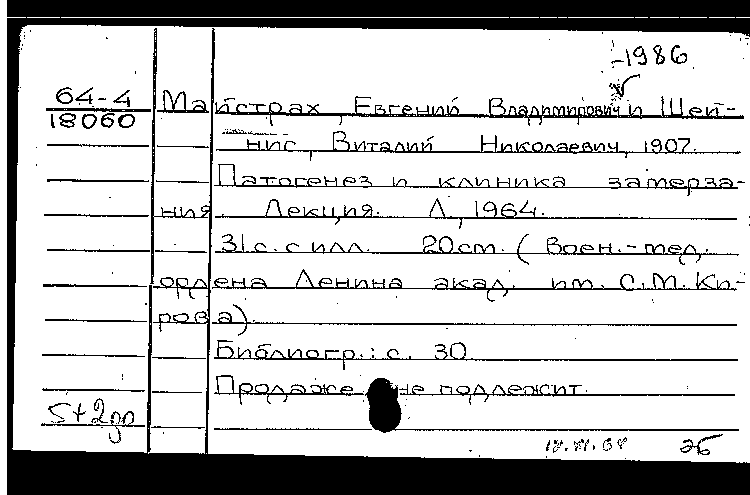 -1986
64-4
18060
Майстрах, Евгений Владимирович и Шей-
нис, Виталий Николаевич, 1907.
Патогенез и клиника замерза-
ния. Лекция. Л., 1964.
31 с. с илл. 20 см. (Воен.-мед.
ордена Ленина акад. им. С.М. Ки-
рова)
Библиогр.: с. 30
Продаже не подлежит.
26